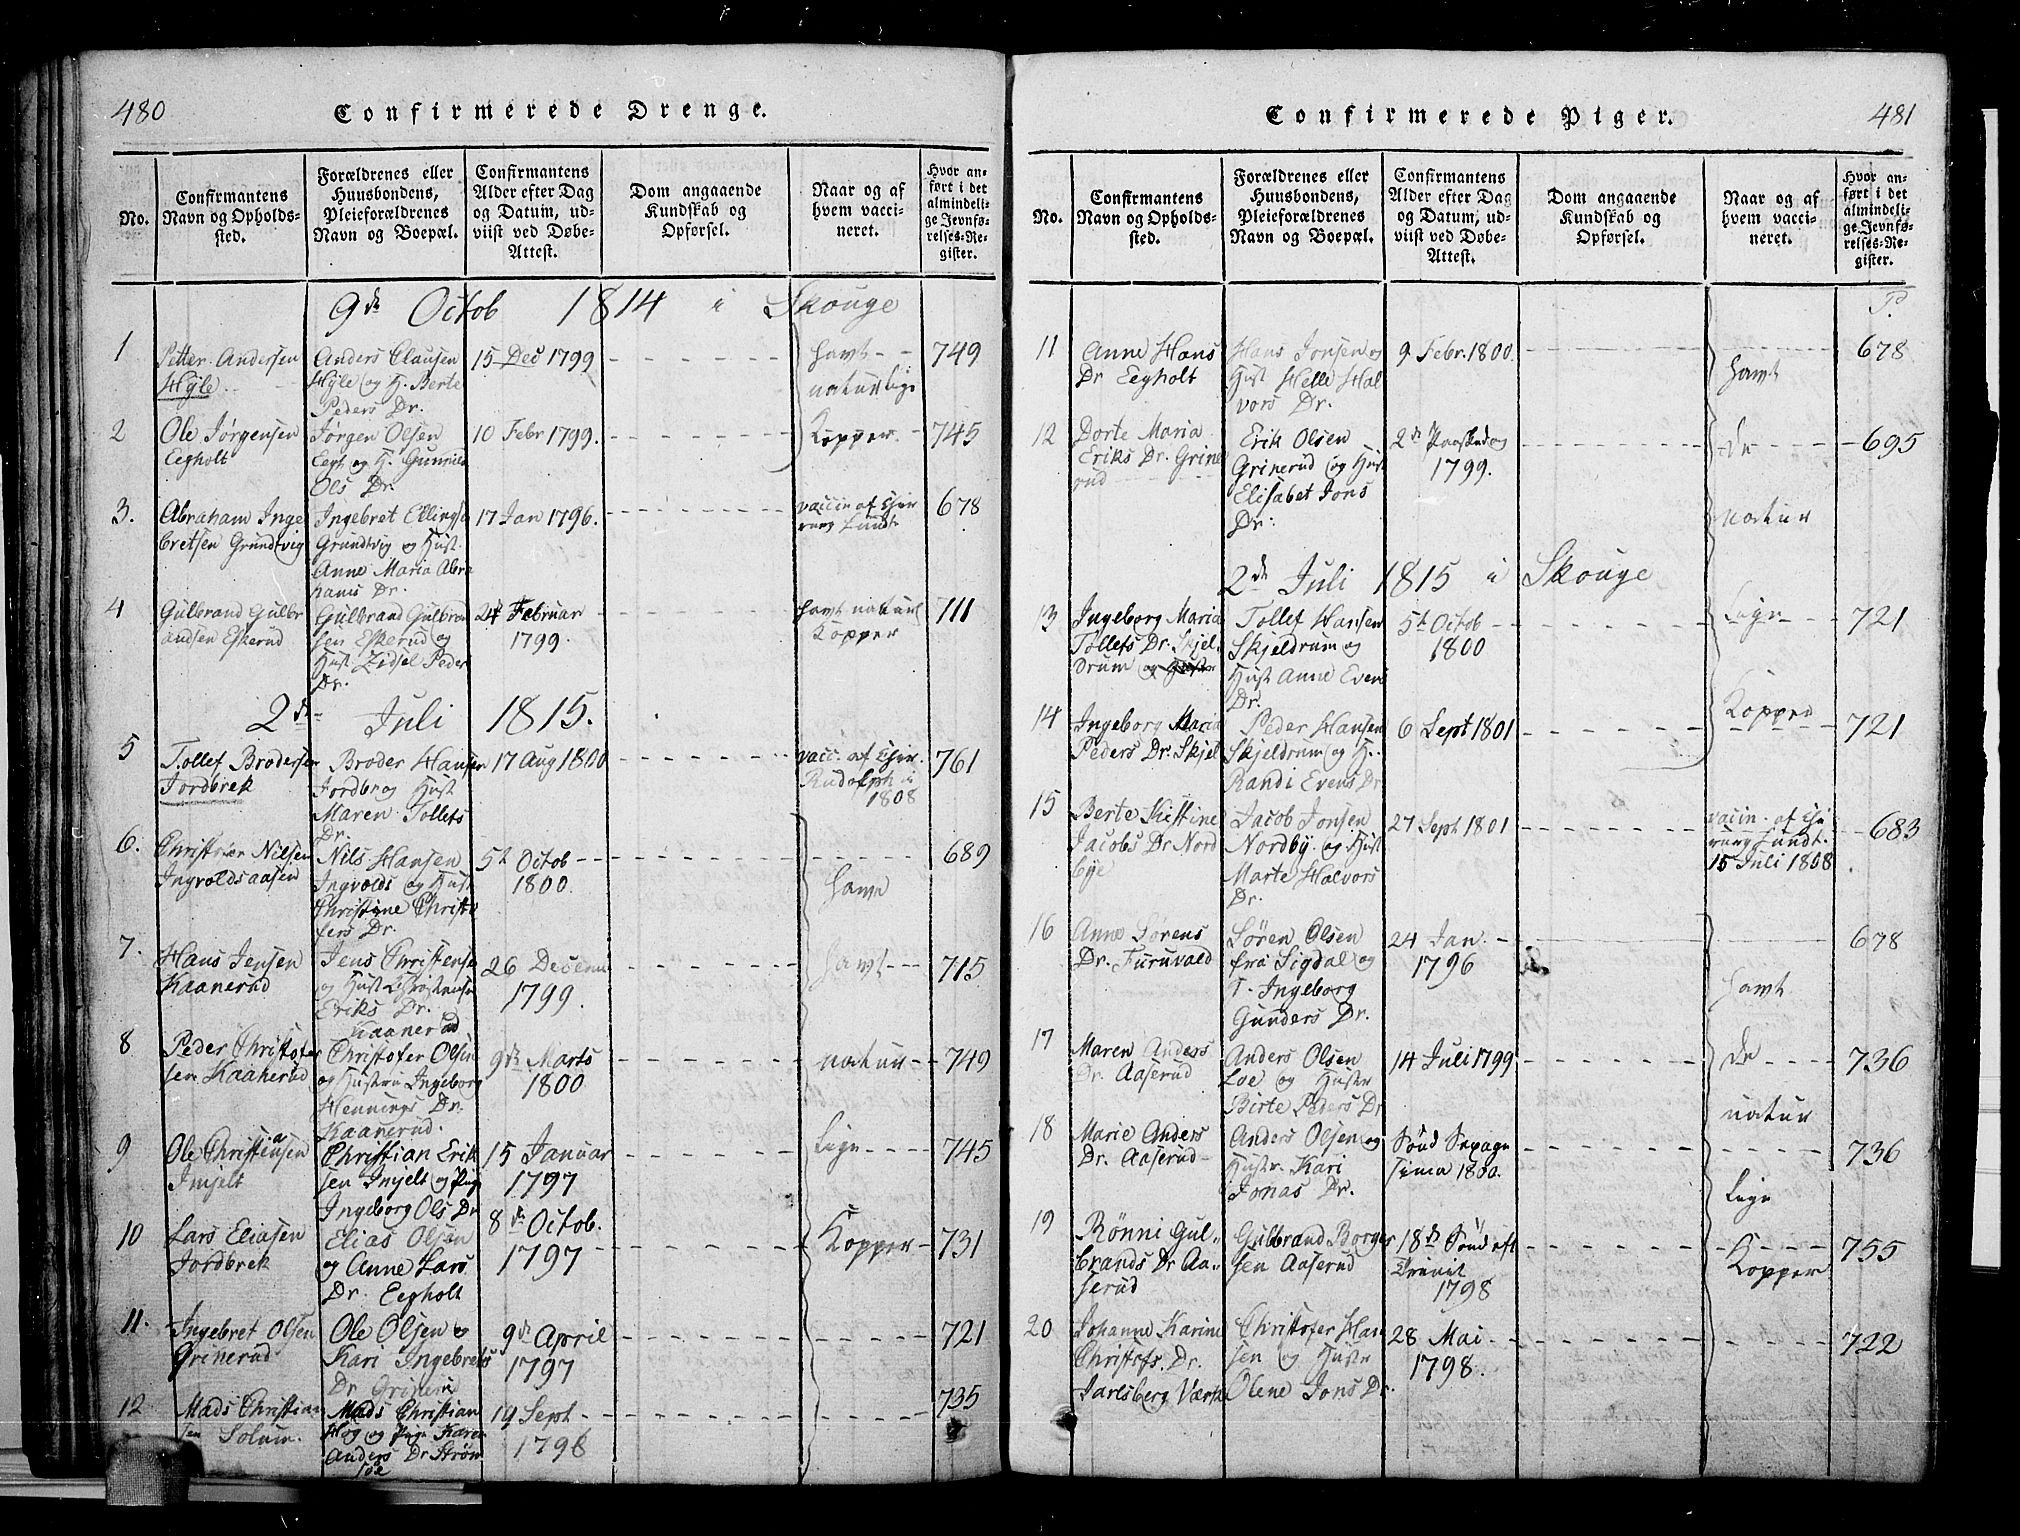 480
Confirmerede Drenge.
No.
Confirmantens
Navn og Opholds-
sted.
Forældrenes eller
Huusbondens,
Pleieforældrenes
Navn og Boepæl.
Confirmantens
Alder efter Dag
og Datum, ud-
viist ved Døbe-
Attest.
Dom angaaende
Kundskab og
Opførsel.
Naar og af
hvem vacci-
neret.
Hvor an-
ført i det
almindeli-
ge Jevnfø-
relses-Re-
gister.
9de Octob 1814 i Skouge
1
Petter Andersen
Hÿle
Anders Clausen
Hÿle og H. Berte
Peders Dr.
15 Dec 1799
havt
naturlige
749
2
Ole Jørgensen
Eegholt
Jørgen Olsen
Eegh og H. Gunnild
Ols Dr.
10 Febr 1799.
Kopper
745
3.
Abraham Inge
bretsen Grundtvig
Ingebret Ellingse
Grundtvig og Hust.
Anne Maria Abra
hams Dr.
17 Jan 1796.
vaccin af Chir
urg Lundt
678
4
Gulbrand Gulbr
andsen Eskerud
Gulbrand Gulbran
sen Eskerud og
Hust Zidsel Peder
Dr.
24 Februar
1799.
havt naturl
Kopper
711
2de Juli 1815.
5
Tollef Brodersen
Jordbrek
Broder Hansen
Jordbr og Hust
Maren Tollefs
Dr.
17 Aug 1800
vacc. af Chir.
Rudolph i
1808
761
6.
Christofer Nilsen
Ingvoldsaasen
Nils Hansen
Ingvolds og Hust
Christine Christo
fers Dr.
5t Octob
1800.
have
689
7.
Hans Jensen
Kaanerud
Jens Christense
og Hust
Eriks Dr.
Kaanerud
26 Decemr
1799.
havt
715
8
Peder Christofer
sen Kaanerud
Christofer Olsen
og Hustru Ingeborg
Hennings Dr.
Kaanerud.
9de Marts
1800
natur
749
9
Ole Christiansen
Injelt
Christian Erik
sen Injelt og Pige
Ingeborg Ols Dr
15 Januar
1797
lige
745
10
Lars Eliasen
Jordbrek
Elias Olsen
og Anne Lars
Dr. Eegholt
8de Octob.
1797
Kopper
731
11.
Ingebret Olsen
Grinerud
Ole Olsen og
Kari Ingebrets
Dr Grinerud
9de April
1797
721
12
Mads Christian
sen Solum.
Mads Christian
Hog og Pige Karen
Anders Dr Strøm
søe
19 Sept
1798
735
481
Confirmerede Piger.
No.
Confirmantens
Navn og Opholds-
sted.
Forældrenes eller
Huusbondens,
Pleieforældrenes
Navn og Boepæl.
Confirmantens
Alder efter Dag
og Datum, ud-
viist ved Døbe-
Attest.
Dom angaaende
Kundskab og
Opførsel.
Naar og af
hvem vacci-
neret.
Hvor an-
ført i det
almindeli-
ge Jevnfø-
relses-Re-
gister.
P.
11
Anne Hans
Dr Eegholt
Hans Jonsen og
Hust Helle Hal
vors Dr.
9 Febr. 1800.
havt
678
12
Dorte Maria
Eriks Dr. Grine
rud
Erik Olsen
Grinerud og Hust
Elisabet Jons
Dr.
2de Paaskedag
1799.
de
natur
695
2de Juli 1815 i Skouge
13
Ingeborg Maria
Tollefs Dr. Skjel-
drum og
Tollef Hansen
Skjeldrum og
Hust Anne Evens
Dr.
5t Octob
1800
lige
721
14
Ingeborg Maria
Peders Dr. Skjel
Peder Hansen
Skjeldrum og H.
Randi Evens Dr
6 Sept 1801
Kopper
721
15
Berte Kistine
Jacobs Dr Nord
bye
Jacob Jonsen
Nordby og Hust
Marte Halvors
Dr.
27 Sept 1801
vaccin. af Chi
rurg Lundt.
15 Juli 1808
683
16
Anne Sørens
Dr. Furuvald
Søren Olsen
fra Sigdal og
Ingeborg
Gunders Dr.
24 Jan.
1796
havt
678
17
Maren Anders
Dr. Aaserud
Anders Olsen
Loe og Hustr
Birte Peders Dr
14 Juli 1799
de
natur
736
18
Marie Anders
Dr. Aaserud
Anders Olsen og
Hustr. Kari
Jonas Dr.
Sønd Sexage
sima 1800.
lige
736
19
Rønni Gul-
brands Dr Aa-
serud
Gulbrand Borger
sen Aaserud
18de Sønd eft
Trinit
1798
Kopper
755
20
Johanne Karine
Christofs. Dr.
Jarlsberg Værk
Christofer Han
sen og Hustr
Olene Jons Dr.
28 Mai
1798.
722